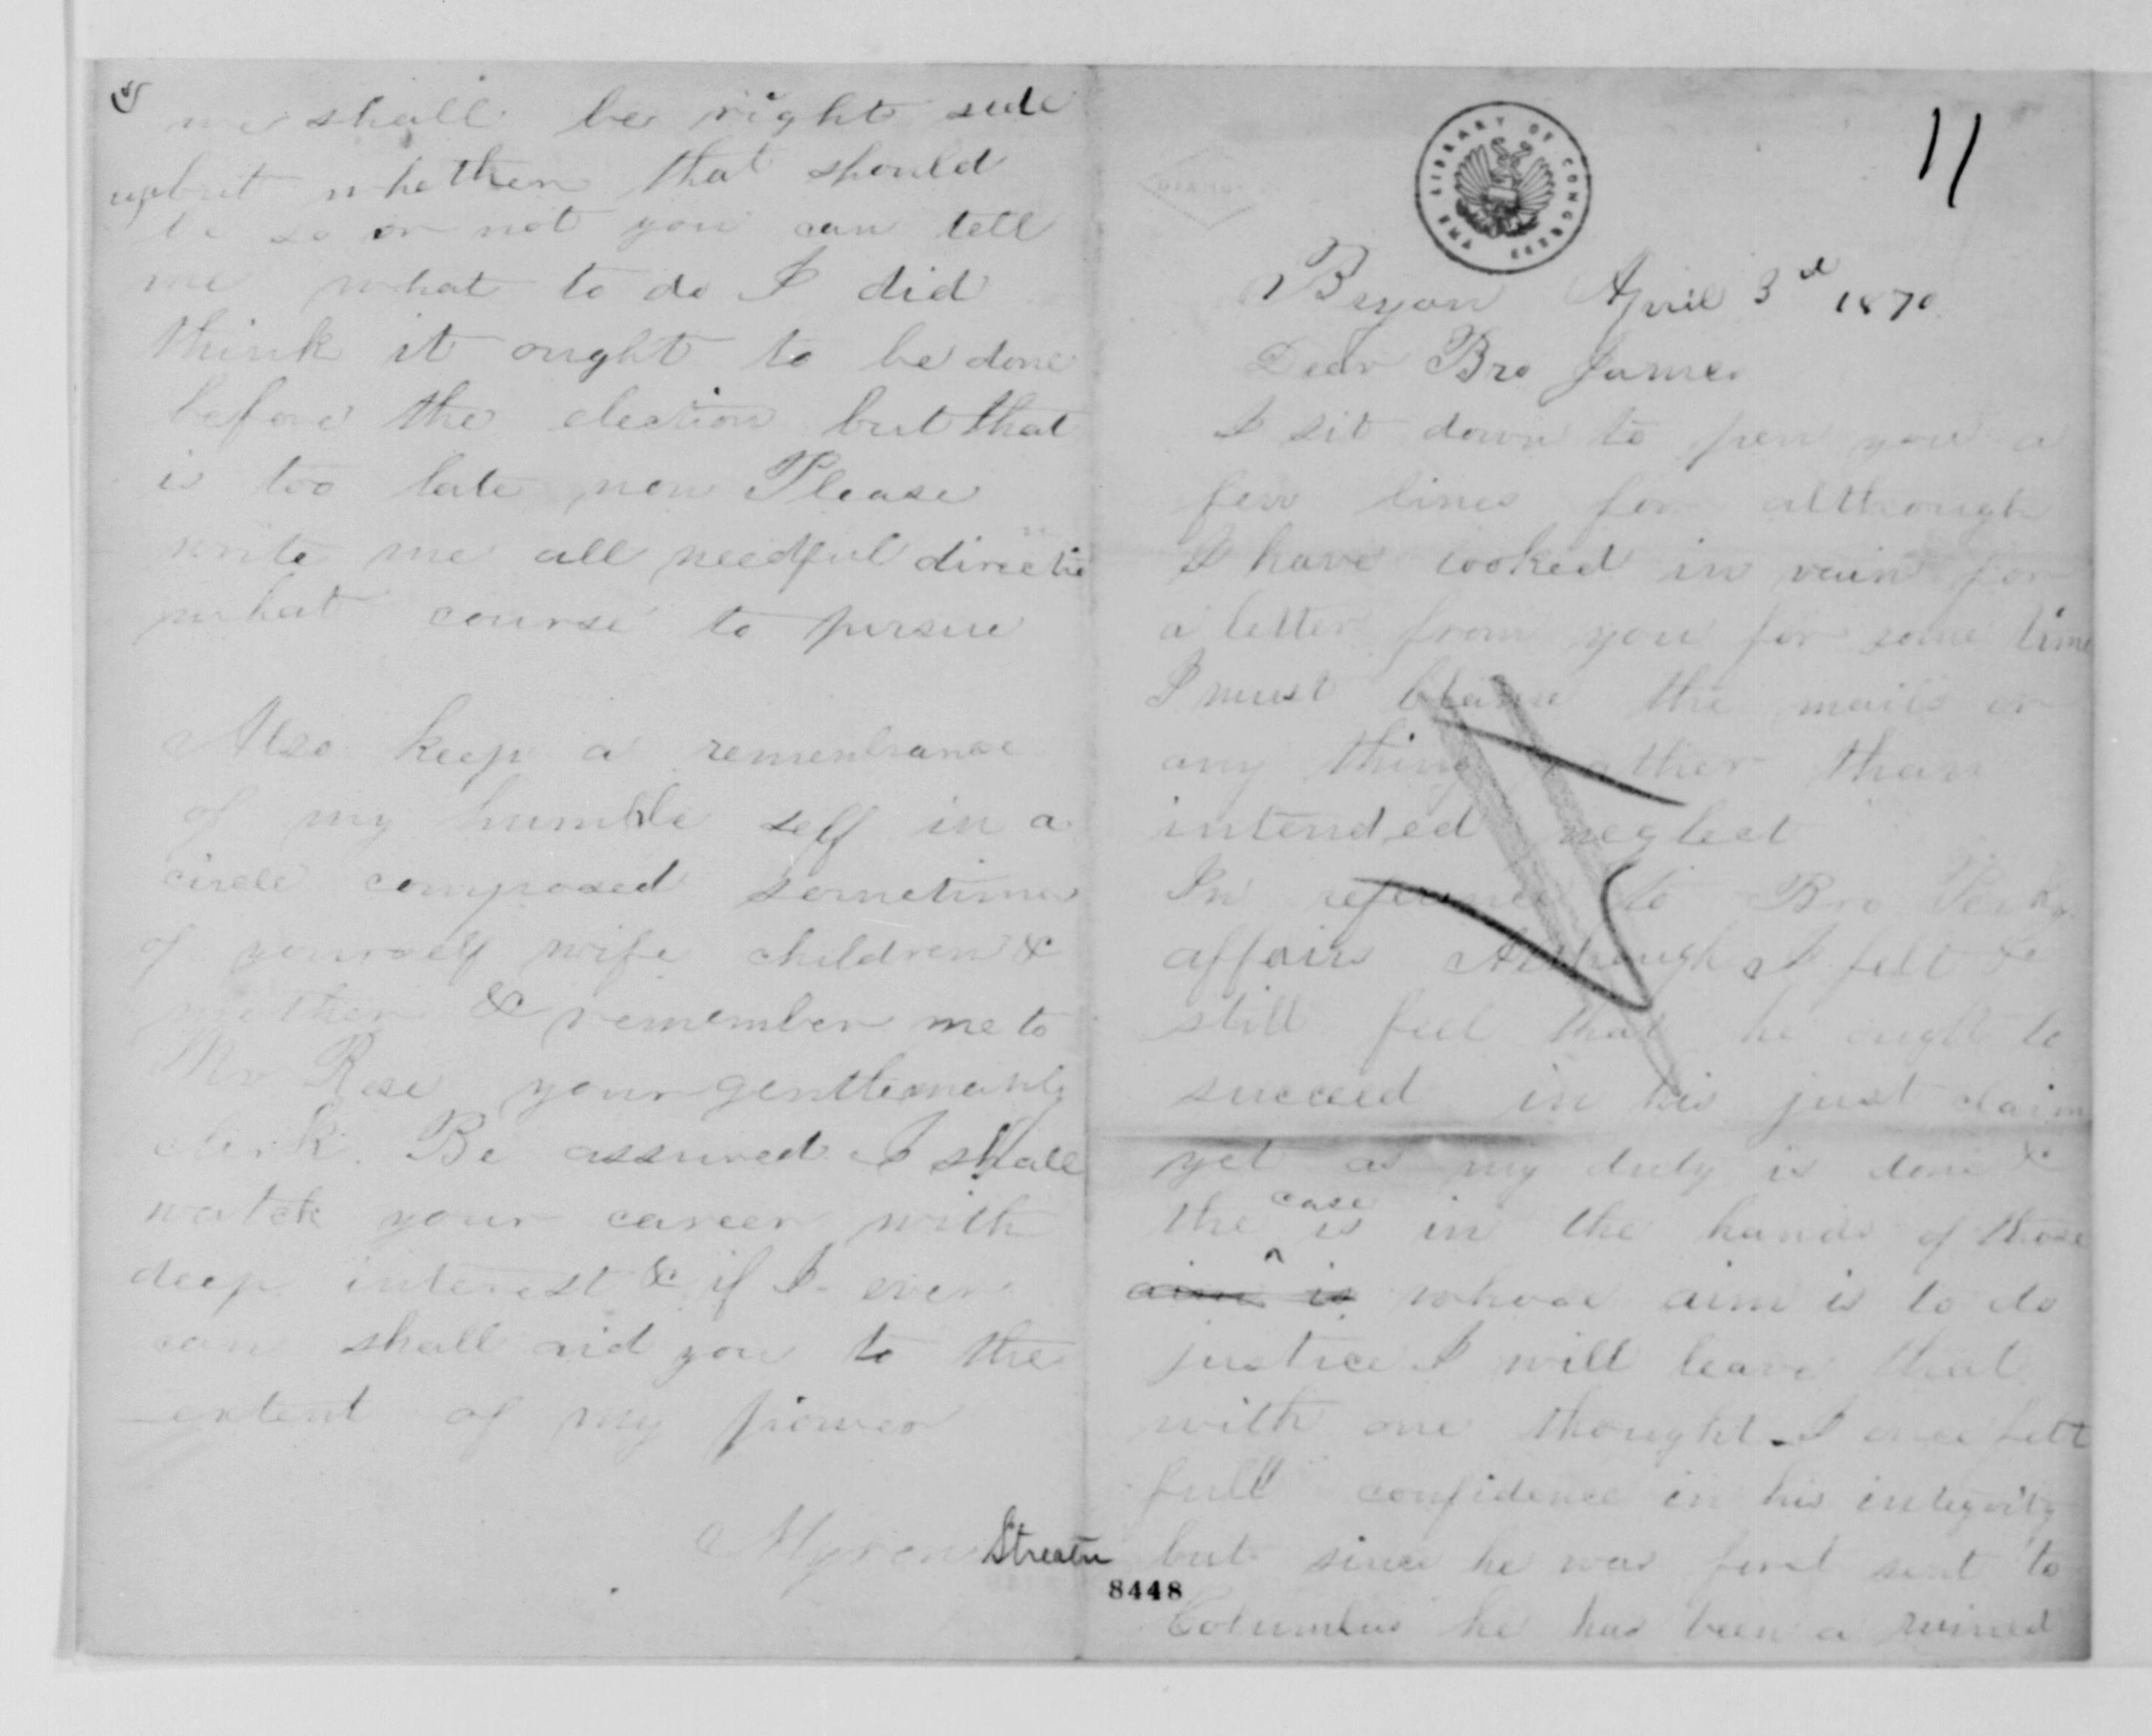 we shall be right side
up but whether that should
be so or not you can tell
me what to do I did
think it ought to be done
before the election but that
is too late now Please
write me all needful directio
ns
what course to pursue
Also keep a remembrance
of my humble self in a
circle composed sometimes
of yourself wife children &
mother & remember me to
Mr Rose your gentlemanly
clerk. Be assured I shall
watch your career with
deep interest & if I ever
can shall aid you to the
extent of my power
Myron Streator
8448
11
THE LIBRARY OF CONGRESS
Bryan April 3d 1870
Dear Bro James
I sit down to pen you a
few lines for although
I have looked in vain for
a letter from you for some time
I must blame the mails or
any thing rather than
intended neglect
In reference to Bro
affairs Although I felt &
still feel that he ought to
succeed in his just claim
yet as my duty is done &
the case is in the hands of those
aim is whose aim is to do
justice I will leave that
with one thought - I once felt
full confidence in his integrity
but since he was first sent to
Columbus he has been a ruined